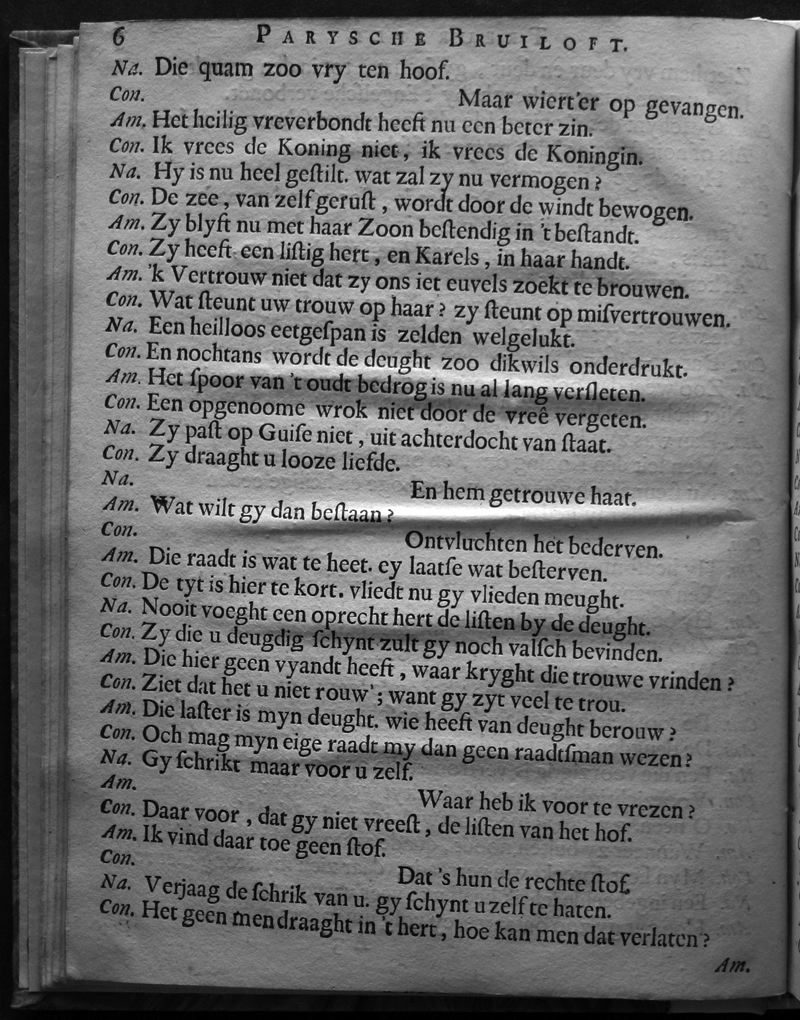 6 PARYSCHE BRUILOFT.
Na. Die quam zoo vry ten hoof.
Con. Maar wiert'er op gevangen.
Am. Het heilig vreverbondt heeft nu een beter zin.
Con. Ik vrees de Koning niet, ik vrees de Koningin.
Na. Hy is nu heel geſtilt. wat zal zy nu vermogen?
Con. De zee, van zelf geruſt, wordt door de windt bewogen.
Am. Zy blyft nu met haar Zoon beſtendig in 't beſtandt.
Con. Zy heeft een liſtig hert, en Karels, in haar handt.
Am. 'k Vertrouw niet dat zy ons iet euvels zoekt te brouwen.
Con. Wat ſteunt uw trouw op haar? zy ſteunt op miſvertrouwen.
Na. Een heilloos eetgeſpan is zelden welgelukt.
Con. En nochtans wordt de deught zoo dikwils onderdrukt.
Am. Het ſpoor van 't oudt bedrog is nu al lang verſleten.
Con. Een opgenoome wrok niet door de vreê vergeten.
Na. Zy paſt op Guiſe niet, uit achterdocht van ſtaat.
Con. Zy draaght u looze liefde.
Na. En hem getrouwe haat.
Am. Wat wilt gy dan beſtaan?
Con. Ontvluchten het bederven.
Am. Die raadt is wat te heet. ey laatſe wat beſterven.
Con. De tyt is hier te kort. vliedt nu gy vlieden meught.
Na. Nooit voeght een oprecht hert de liſten by de deught.
Con. Zy die u deugdig ſchynt zult gy noch valſch bevinden.
Am. Die hier geen vyandt heeft, waar kryght die trouwe vrinden?
Con. Ziet dat het u niet rouw'; want gy zyt veel te trou.
Am. Die laſter is myn deught. wie heeft van deught berouw?
Con. Och mag myn eige raadt my dan geen raadtſman wezen?
Na. Gy ſchrikt maar voor u zelf.
Am. Waar heb ik voor te vrezen?
Con. Daar voor, dat gy niet vreeſt, de liſten van het hof.
Am. Ik vind daar toe geen ſtof.
Con. Dat 's hun de rechte ſtof.
Na. Verjaag de ſchrik van u. gy ſchynt u zelf te haten.
Con. Het geen men draaght in 't hert, hoe kan men dat verlaten?
Am.